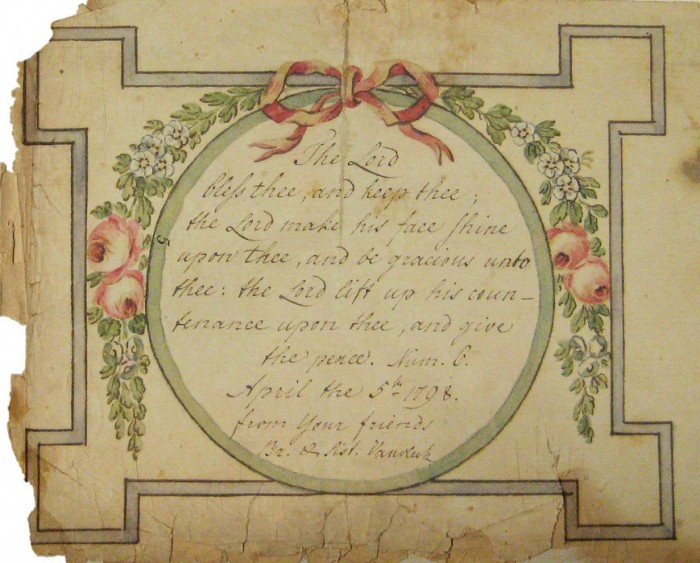 The Lord
bless thee, and keep thee;
the Lord make his face shine
upon thee, and be gracious unto
thee: the Lord lift up his coun-
tenance upon thee, and give
the peace. Num. 6.
April the 5th 1798.
from Your friends
Br. & Sist.